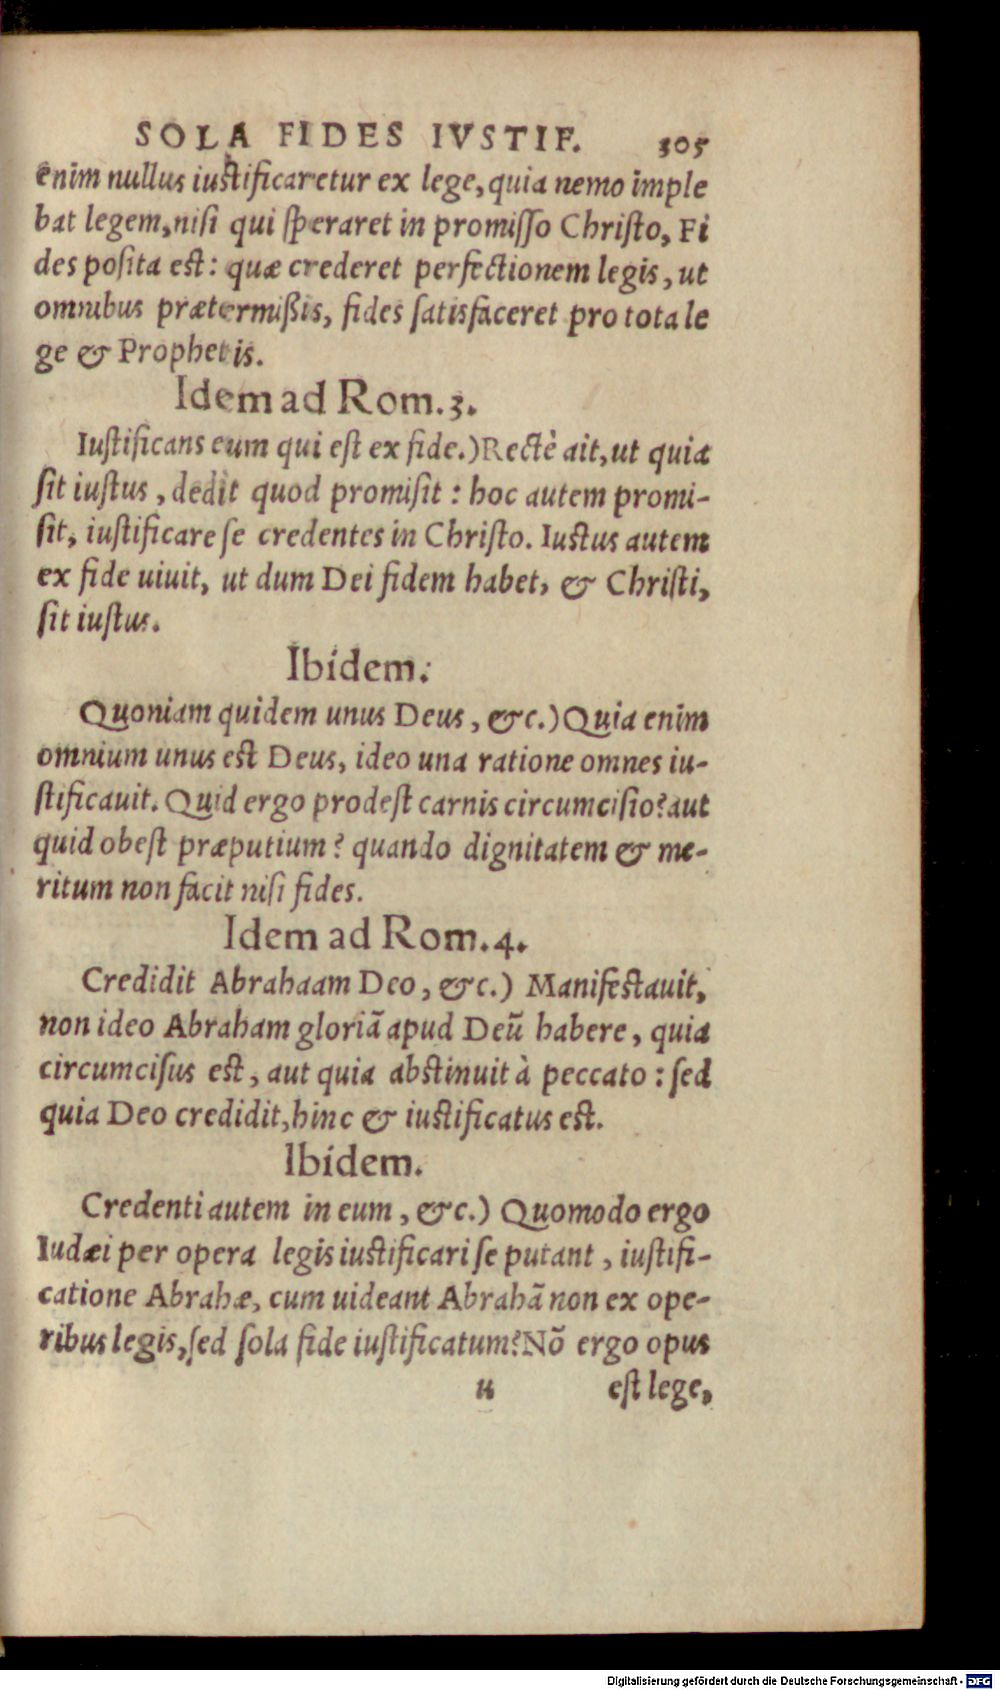 SOLA FIDES IVSTIF. 305
enim nullus iustificaretur ex lege, quia nemo imple
bat legem, nisi qui speraret in promisso Christo, Fi
des posita est: quæ crederet perfectionem legis, ut
omnibus prætermißis, fides satisfaceret pro tota le
ge & Prophetis.
Idem ad Rom. 3.
Iustificans eum qui est ex fide.) Rectè ait, ut quia
sit iustus, dedit quod promisit: hoc autem promi-
sit, iustificare se credentes in Christo. Iustus autem
ex fide uiuit, ut dum Dei fidem habet, & Christi,
sit iustus.
Ibidem.
Quoniam quidem unus Deus, &c.) Quia enim
omnium unus est Deus, ideo una ratione omnes iu-
stificauit. Quid ergo prodest carnis circumcisio? aut
quid obest præputium? quando dignitatem & me-
ritum non facit nisi fides.
Idem ad Rom. 4.
Credidit Abrahaam Deo, &c.) Manifestauit,
non ideo Abraham gloriã apud Deũ habere, quia
circumcisus est, aut quia abstinuit à peccato: sed
quia Deo credidit, hinc & iustificatus est.
Ibidem.
Credenti autem in eum, &c.) Quomodo ergo
Iudæi per opera legis iustificari se putant, iustifi-
catione Abrahæ, cum uideant Abrahã non ex ope-
ribus legis, sed sola fide iustificatum? Nõ ergo opus
u est lege,
Digitalisierung gefördert durch die Deutsche Forschungsgemeinschaft - DFG